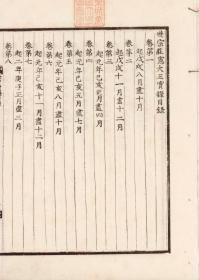 世宗莊憲大王實錄目錄
卷第一
起戊戌八月盡十月
卷第二
起戊戌十一月盡十二月
卷第三
起元年己亥正月盡四月
卷第四
起元年己亥五月盡七月
卷第五
起元年己亥八月盡十月
卷第六
起元年己亥十一月盡十二月
卷第七
起二年庚子正月盡三月
卷第八